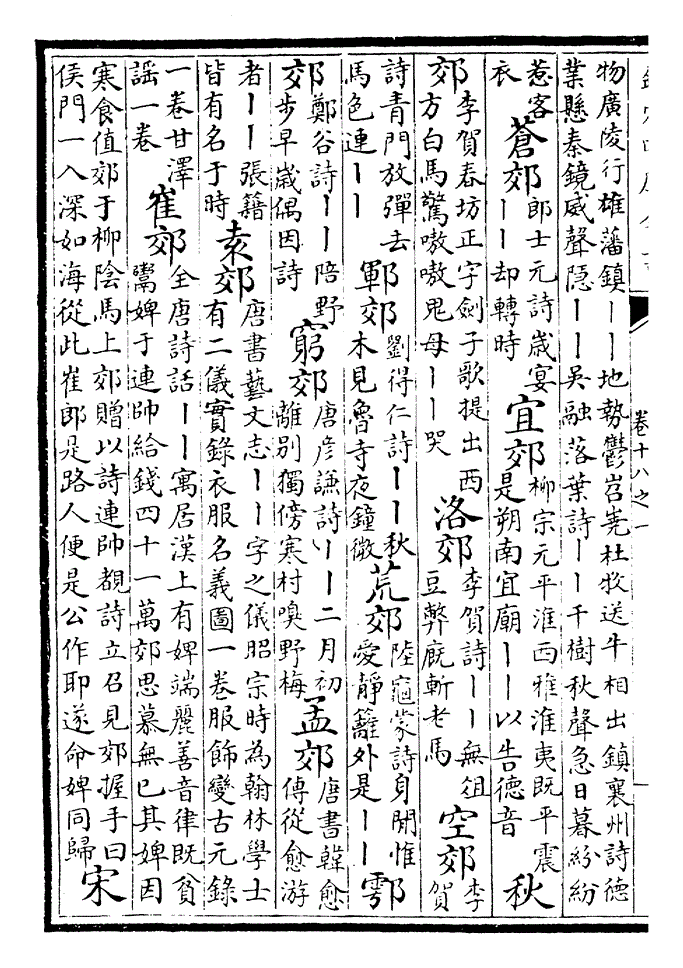 物廣陵行雄藩鎮丨丨地勢鬱岧嶤杜牧送牛相出鎮襄州詩德業懸秦鏡威聲隱丨丨吳融落葉詩丨丨千樹秋聲急日暮紛紛
惹客衣 蒼郊 郎士元詩歲宴丨丨却轉時 宜郊 柳宗元平淮西雅淮夷既平震是朔南宜廟丨丨以告德音 秋
郊 李賀春坊正字劍子歌提出西方白馬驚嗷嗷鬼母丨丨哭 洛郊 李賀詩丨丨無俎豆弊廐斬老馬 空郊 李賀
詩青門放彈去馬色連丨丨 鄆郊 劉得仁詩丨丨秋木見魯寺夜鐘微 荒郊 陸龜蒙詩身閒惟愛靜籬外是丨丨 鄠
郊 鄭谷詩丨丨陪野步早歲偶因詩 窮郊 唐彦謙詩丨丨二月初離別獨傍寒村嗅野梅 孟郊 唐書韓愈傳從愈游
者丨丨張籍皆有名于時 袁郊 唐書藝文志丨丨字之儀昭宗時為翰林學士有二儀實錄衣服名義圖一卷服飾變古元錄
一卷甘澤謡一卷 崔郊 全唐詩話丨丨寓居漢上有婢端麗善音律既貧鬻婢于連帥給錢四十一萬郊思慕無已其婢因
寒食值郊于柳陰馬上郊贈以詩連帥覩詩立召見郊握手曰侯門一入深如海從此崔郎是路人便是公作耶遂命婢同歸 宋
卷十八之一